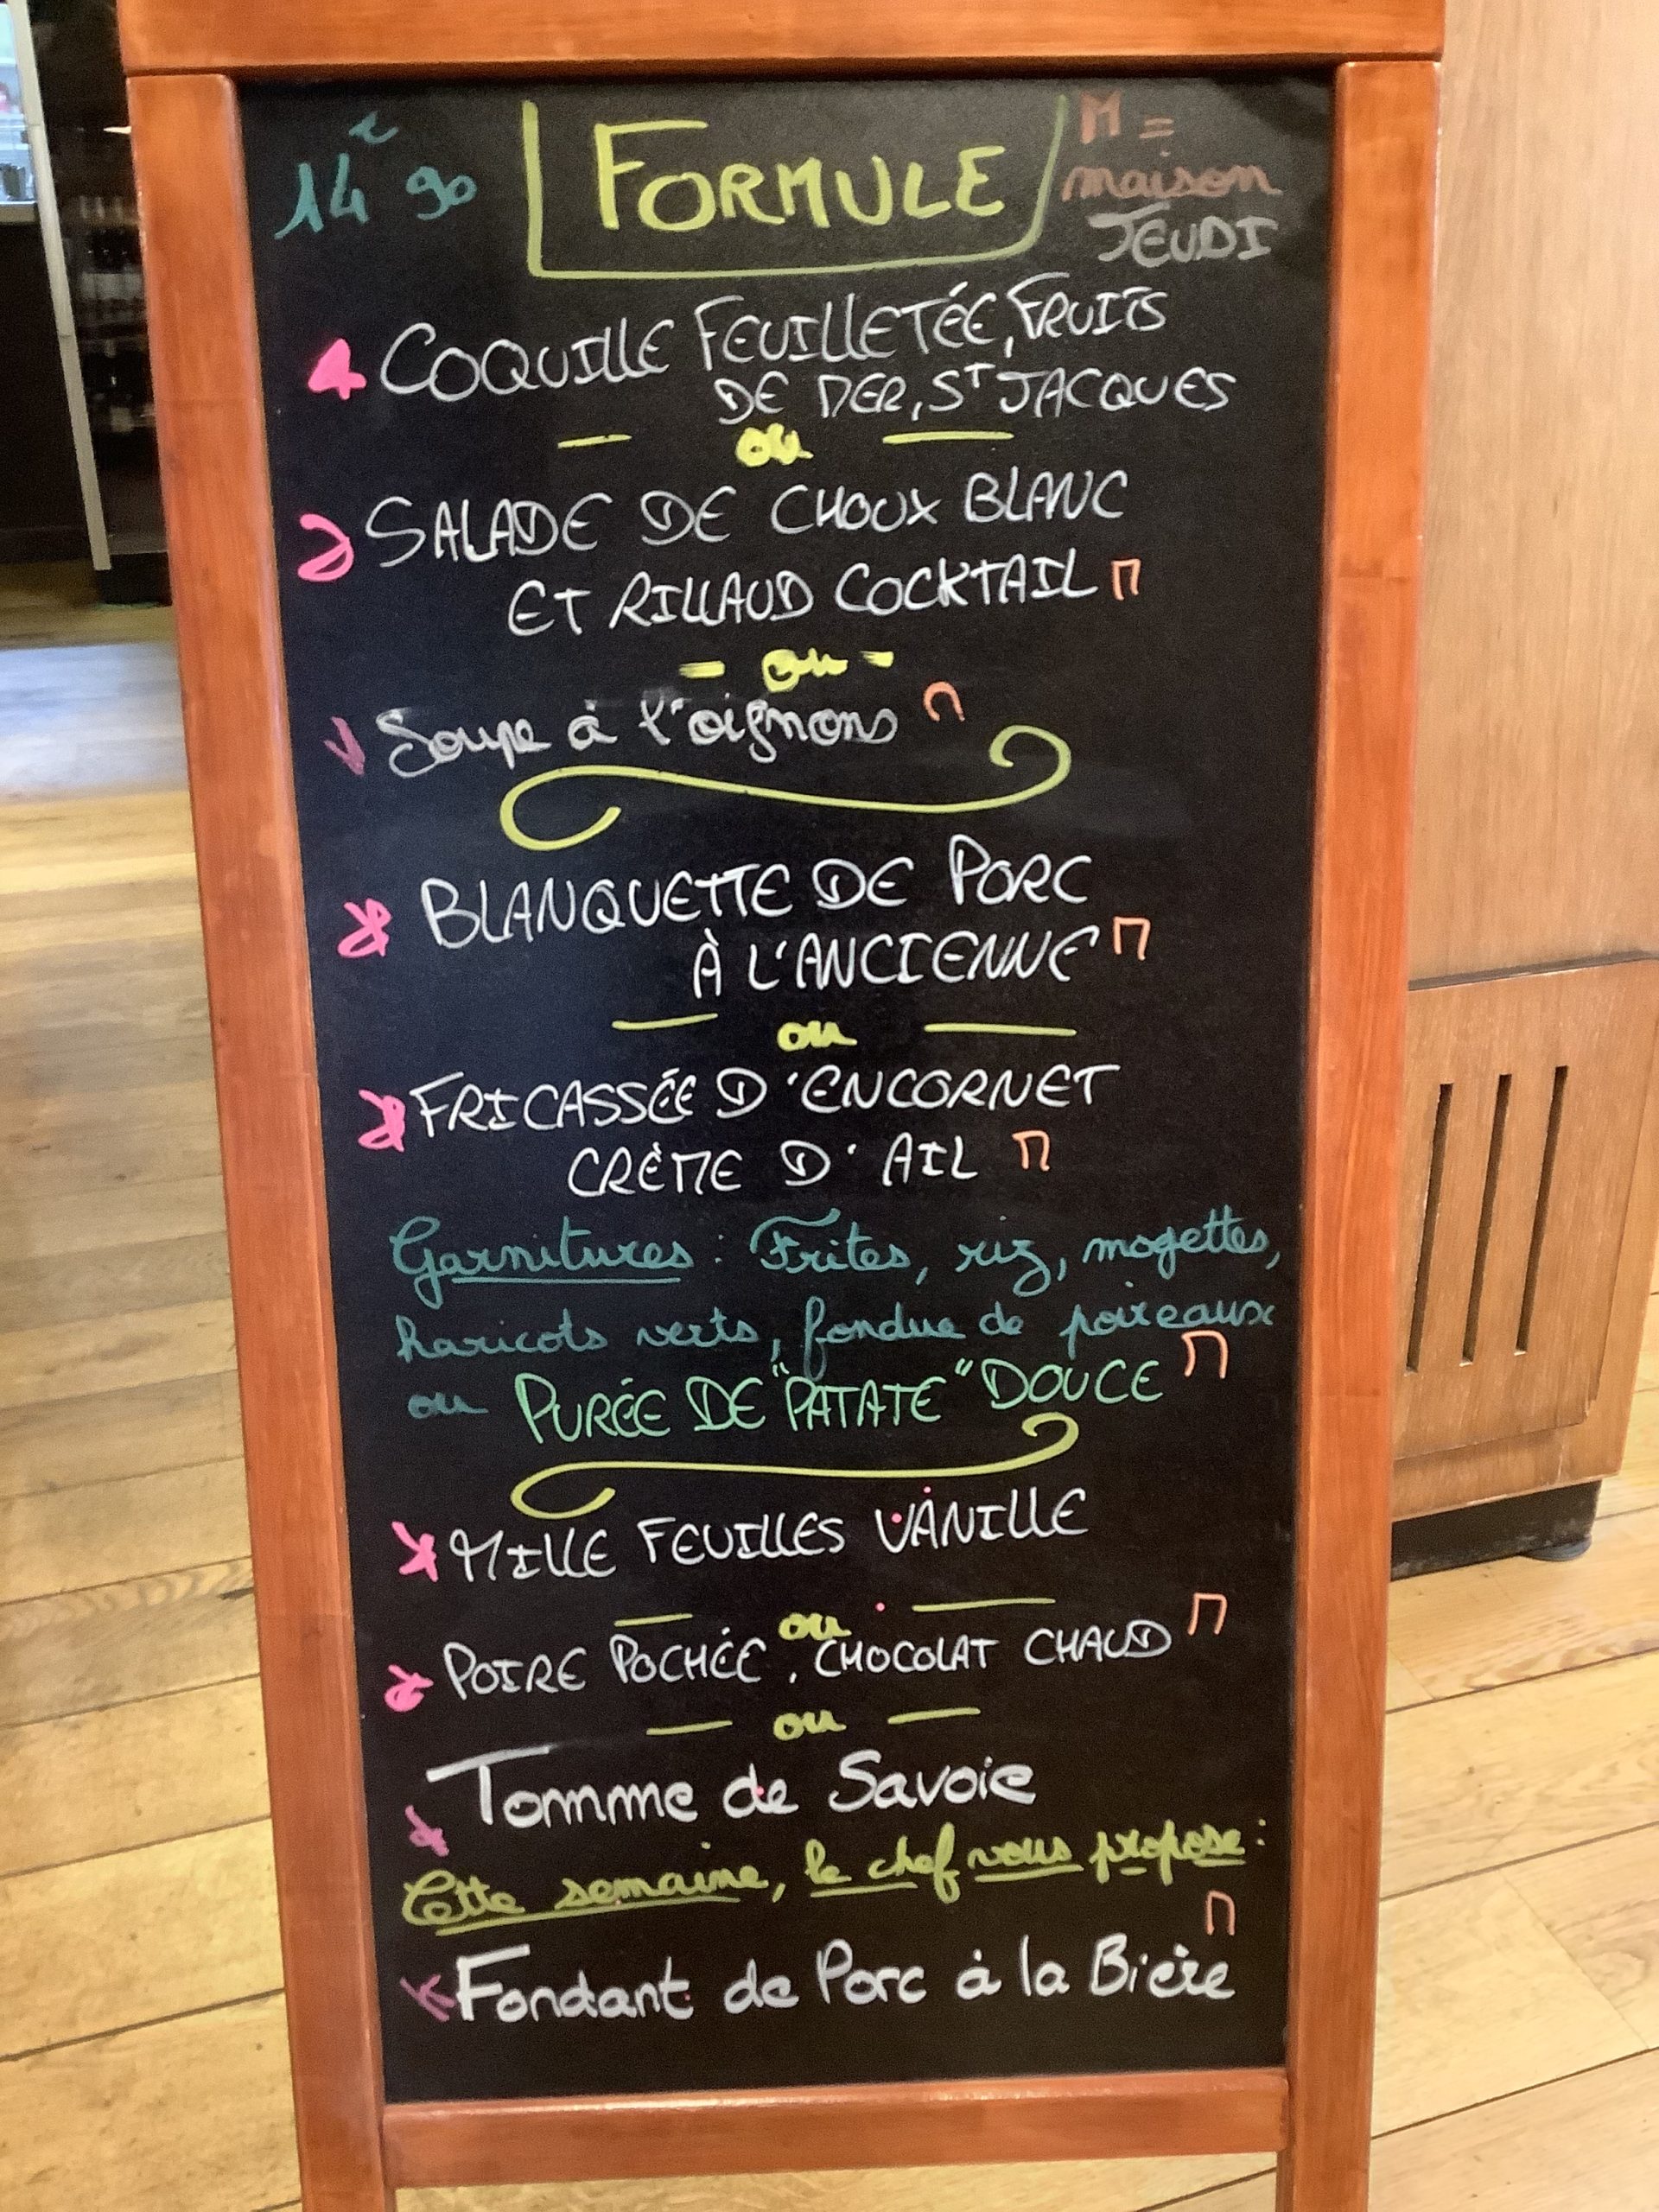 14€90 FORMULE M = maison
JEUDI
COQUILLE FEUILLETÉE, FRUITS
DE MER, ST JACQUES
— ou —
SALADE DE CHOUX BLANC
ET RILLAUD COCKTAIL M
- ou -
Soupe à l'oignons M
BLANQUETTE DE PORC
À L'ANCIENNE M
— ou —
FRICASSÉE D'ENCORNET
CRÈME D'AIL M
Garnitures : Frites, riz, mogettes,
haricots verts, fondue de poireaux
ou PURÉE DE "PATATE" DOUCE M
MILLE FEUILLES VANILLE
— ou —
POIRE POCHÉE, CHOCOLAT CHAUD M
— ou —
Tomme de Savoie
Cette semaine, le chef vous propose :
Fondant de Porc à la Bière M